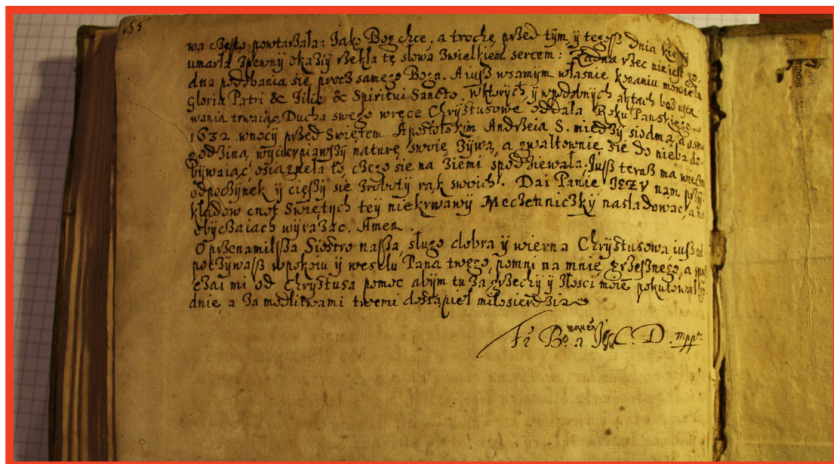 155
wa często powtarzała: Jako Bog chce, a trochę przed tym ij tegoß dnia kiedy
umarła zpewnij okazij rzekła te słowa zwielkiem sercem: Żadna rzec nie jest go
dna podobania się procz samego Boga. A iuß wsamym własnie konaniu mowiła
gloria Patri & Filio & Spiritui Sancto. Wktorych ij wpodobnych aktach bez usta
wania trwaiąc, Ducha swego wręce Chrÿstusowe oddała Roku Panskiego
1632 wnocÿ przed Swiętem Apostolskim Andrzeia S. miedzÿ siodmą, a osmą
godziną, wÿcierpiawßÿ naturę swoię zÿwą, a gwałtownie się do nieba do
bijwaiąc, osiągnęła to, czego się na ziemi spodziewała; Jusß teraß ma
odpoczÿnek ij cießÿ się zrobotÿ rąk swoich. Dai Panie Jezv nam przÿ
kładow cnot Swiętych teÿ niekrwawÿ Męczenniczkÿ nasladować, a w
obÿczaiach wÿrazac. Amen.
O przenamilßa Siostro naßa, sługo dobra ÿ wierna Chrÿstusowa, iuß od
poczÿwaß wpokoiu ÿ weselu Pana twego, pomni na mnie grzeßnego, a
mi od Chrÿstusa pomoc abÿm tu za grzechÿ ÿ złosci moie pokutował
dnie a za modlitwami twemi dostąpieł miłosierdzia
C. D. mpp.